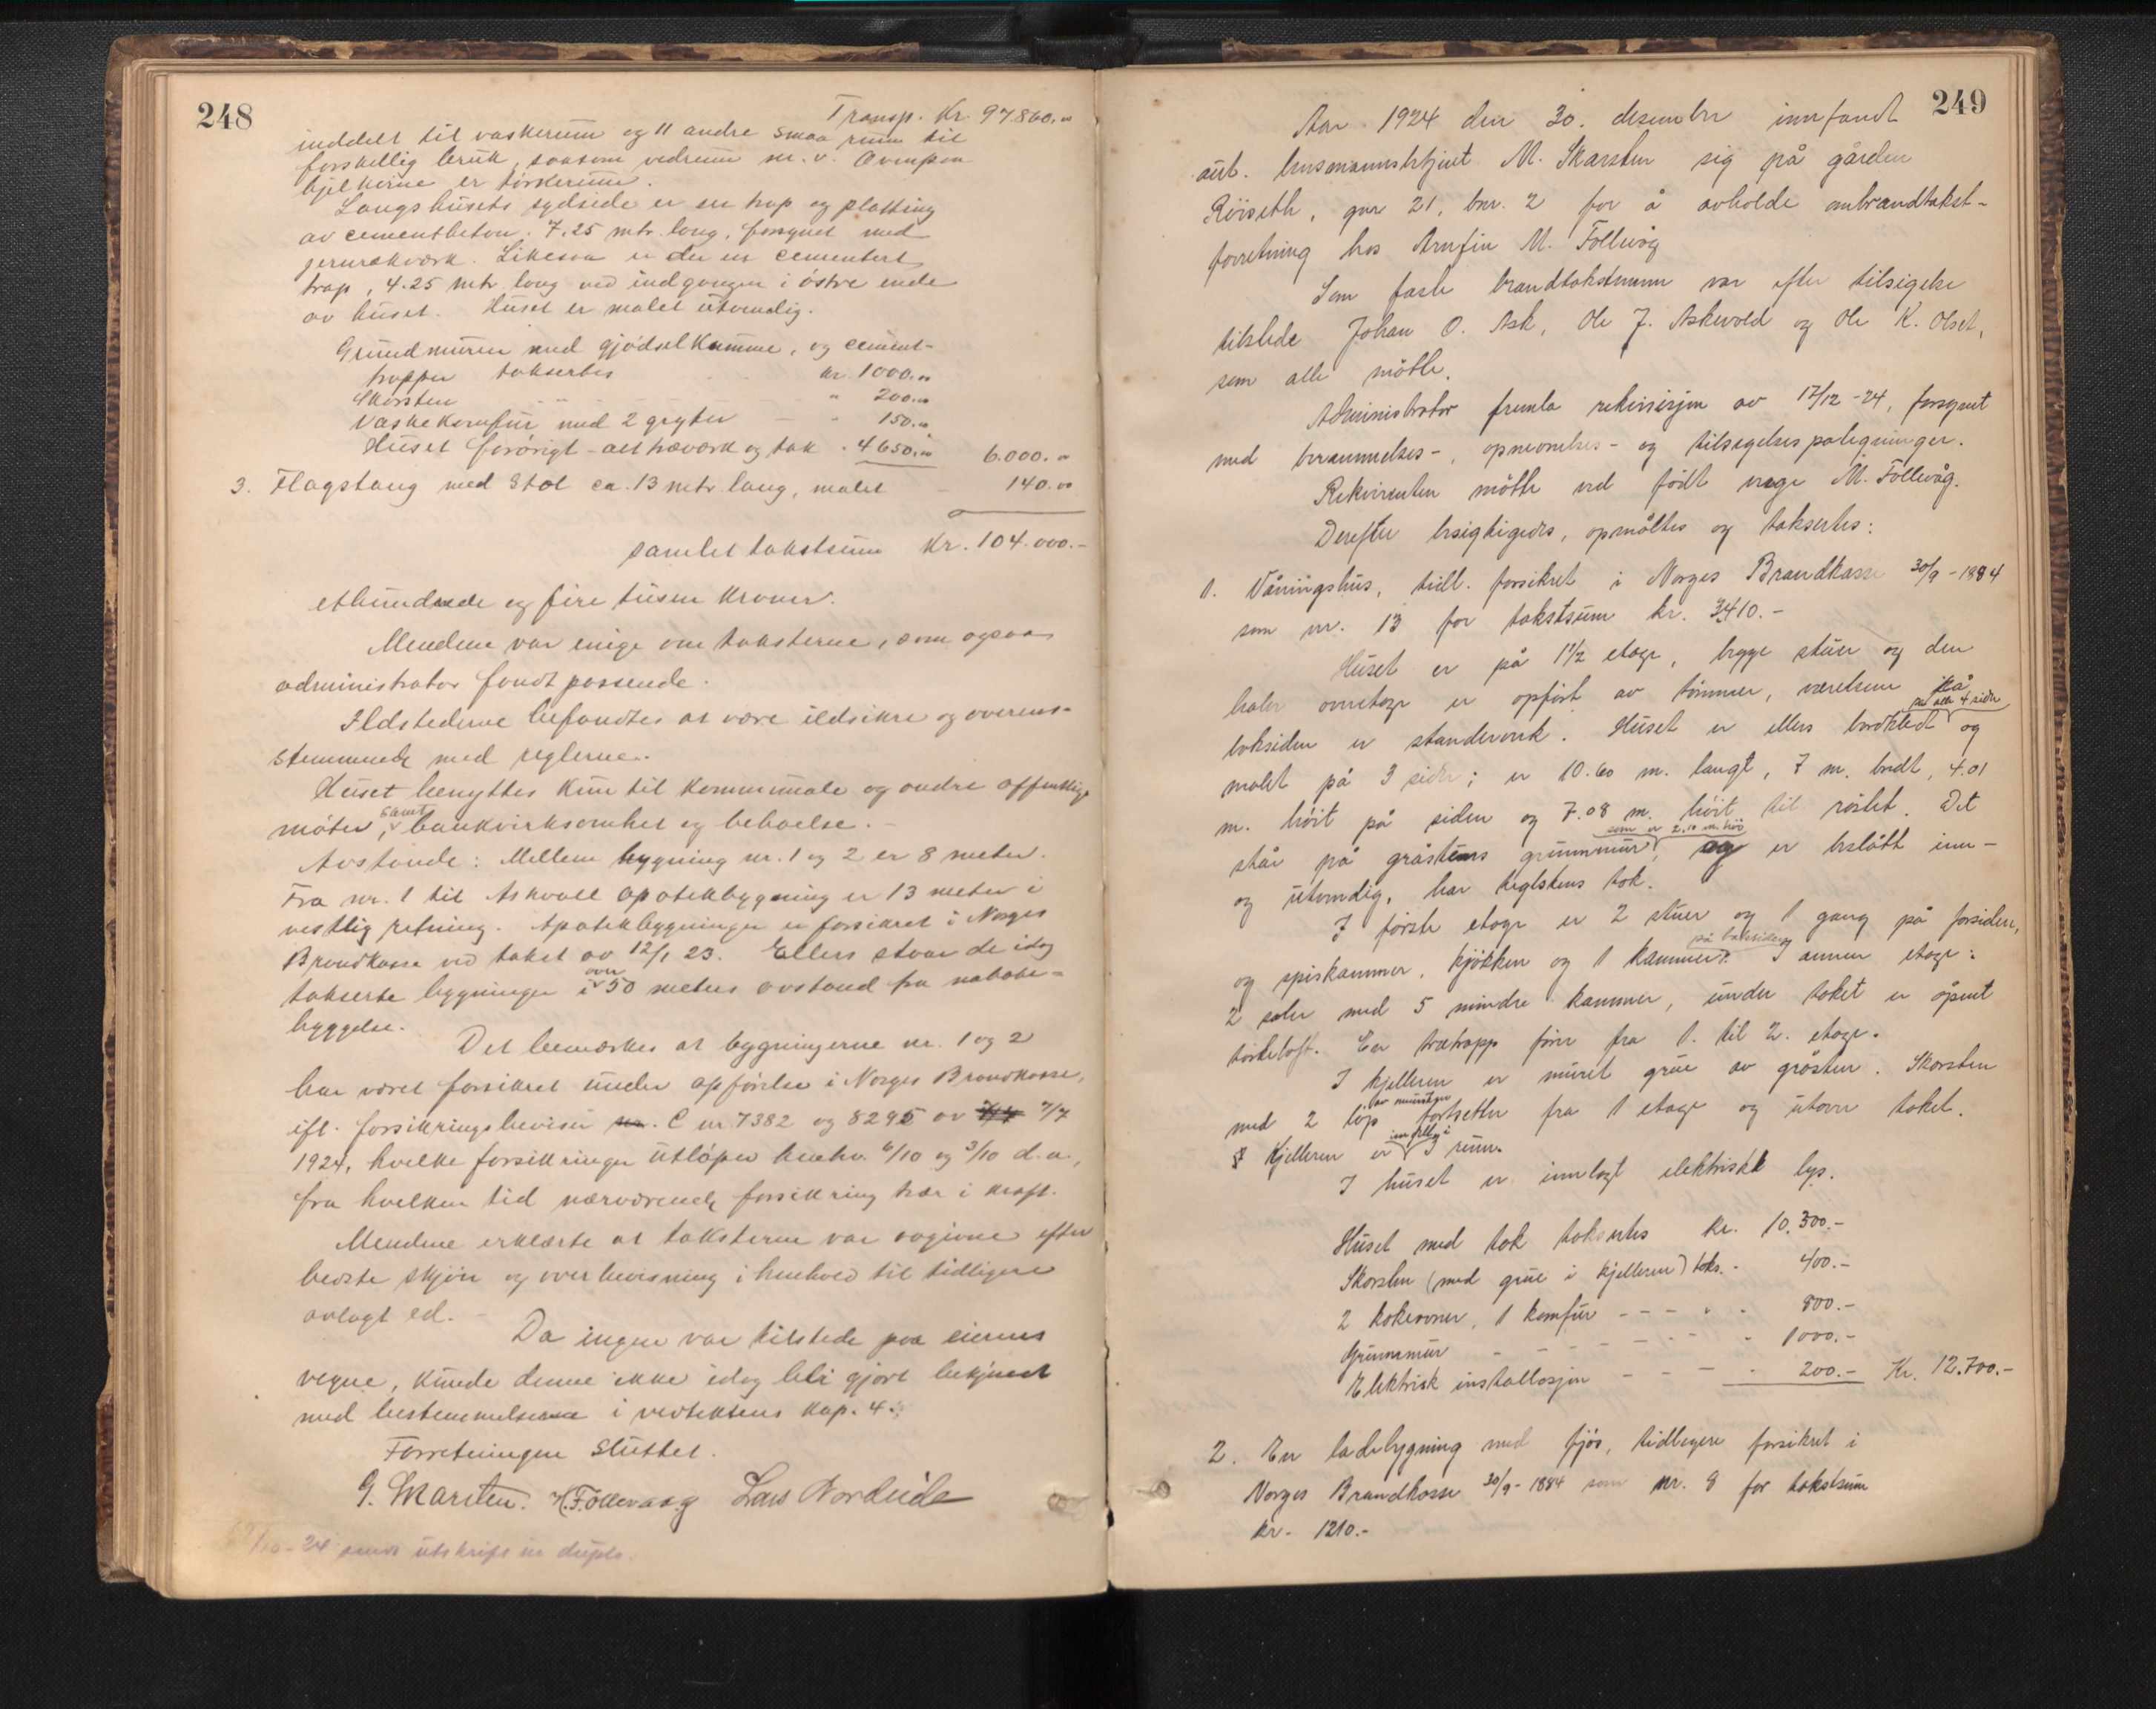 248
Transp. Kr. 97.860,00
inddelt til vaskerum og 11 andre smaa rum til
forskellig bruk, saasom vedrum m.v. Ovenpaa
bjelkerne er tørkerum.
Langs husets sydside er en trap og platting
av cementbeton. 7.25 mtr. lang, forsynet med
jernrækværk. Likesaa er der en cementert
trap, 4.25 mtr. lang ved indgangen i østre ende
av huset. Huset er malet utvendig.
Grundmuren med gjødselkumme, og cement-
trapper takseres kr. 1000.00
Skorsten " 200.00
Vaskekomfur med 2 gryter - " 150.00
Huset forøvrigt - alt træværk og tak " 4650.00 6.000.00
3. Flagstang med Stol ca. 13 mtr. lang, malet - 140.00
samlet takstsum Kr. 104.000.-
ethundrede og fire tusen kroner.
Mendene var enige om taksterne, som ogsaa
administrator fandt passende.
Ildstederne befandtes at være ildsikre og overens-
stemmende med reglerne.
Huset benyttes kun til kommunale og andre offentlige
møter, samt bankvirksomhet og beboelse. -
Avstande: Mellem bygning nr. 1 og 2 er 8 meter.
Fra nr. 1 til Askvoll apotekbygning er 13 meter i
vestlig retning. Apotekbygningen er forsikret i Norges
Brandkasse ved takst av 12/1 23. Ellers staar de idag
takserte bygninger i over 50 meters avstand fra nabobe-
byggelse.
Det bemærkes at bygningerne nr. 1 og 2
har været forsikret under opførelse i Norges Brandkasse,
ifl. forsikringsbeviser C nr. 7382 og 8295 av 7/7
1924, hvilke forsikringer utløper henhv. 6/10 og 3/10 d.a.,
fra hvilken tid nærværende forsikring trær i kraft.
Mendene erklærte at taksterne var avgivne efter
bedste skjøn og overbevisning i henhold til tidligere
avlagt ed. -
Da ingen var tilstede paa eierens
vegne, kunde denne ikke idag bli gjort bekjent
med bestemmelserne i vedtektens kap. 4.
Forretningen sluttet.
G. Skarsten. H. Follevaag Lars Nordeide
/10-24 sendt utskrift in duplo.
249
Aar 1924 den 30. desember innfandt
aut. lensmannsbetjent M. Skarsten sig på gården
Röiseth, gnr 21, bnr. 2 for å avholde ombrandtakst-
forretning hos Arnfin M. Follevåg
Som faste brandtakstmenn var efter tilsigelse
tilstede Johan O. Ask, Ole J. Askevold og Ole K. Olset,
som alle mötte.
Administrator fremla rekvisisjon av 17/12-24, forsynt
med berammelses-, opnevnelses- og tilsigelsespategninger.
Rekvirenten mötte ved M. Follevåg.
Derefter besigtigedes, opmåltes og taksertes:
1. Våningshus, tidl. forsikret i Norges Brandkasse 30/9-1884
som nr. 13 for takstsum kr. 3410.-
Huset er på 1 1/2 etage, begge stuer og den
halve overetage er opfört av tömmer, værelsene på
baksiden er standerverk. Huset er ellers bordkledt på alle 4 sider og
malt på 3 sider; er 10.60 m. langt, 7 m. bredt, 4.01
m. höit på siden og 7.08 m. höit til röstet. Det
står på gråstens grunnmur, som er 2.10 m. höi og er beslått inn-
og utvendig, har teglstens tak.
I förste etage er 2 stuer og 1 gang på forsiden,
og spiskammer, kjökken og 1 kammer på baksiden. I annen etage:
2 saler med 5 mindre kammer, under taket er åpent
törkeloft. En tretrapp förer fra 1. til 2. etage.
I kjelleren er muret grue av gråsten. Skorsten
med 2 löp av mursten fortsetter fra 1 etage og utover taket.
Kjelleren er inndelt i 3 rum.
I huset er innlagt elektrisk lys.
Huset med tak taksertes kr. 10.300.-
Skorsten (med grue i kjelleren) taks. - 400.-
2 kokeovner, 1 komfur - - - " - 800.-
Grunnmur - - - - - " 1000.-
Elektrisk installasjon - - - 200.- Kr. 12.700.-
2. En ladebygning med fjös, tidligere forsikret i
Norges Brandkasse 30/9-1884 som nr. 8 for takstsum
kr. 1210.-